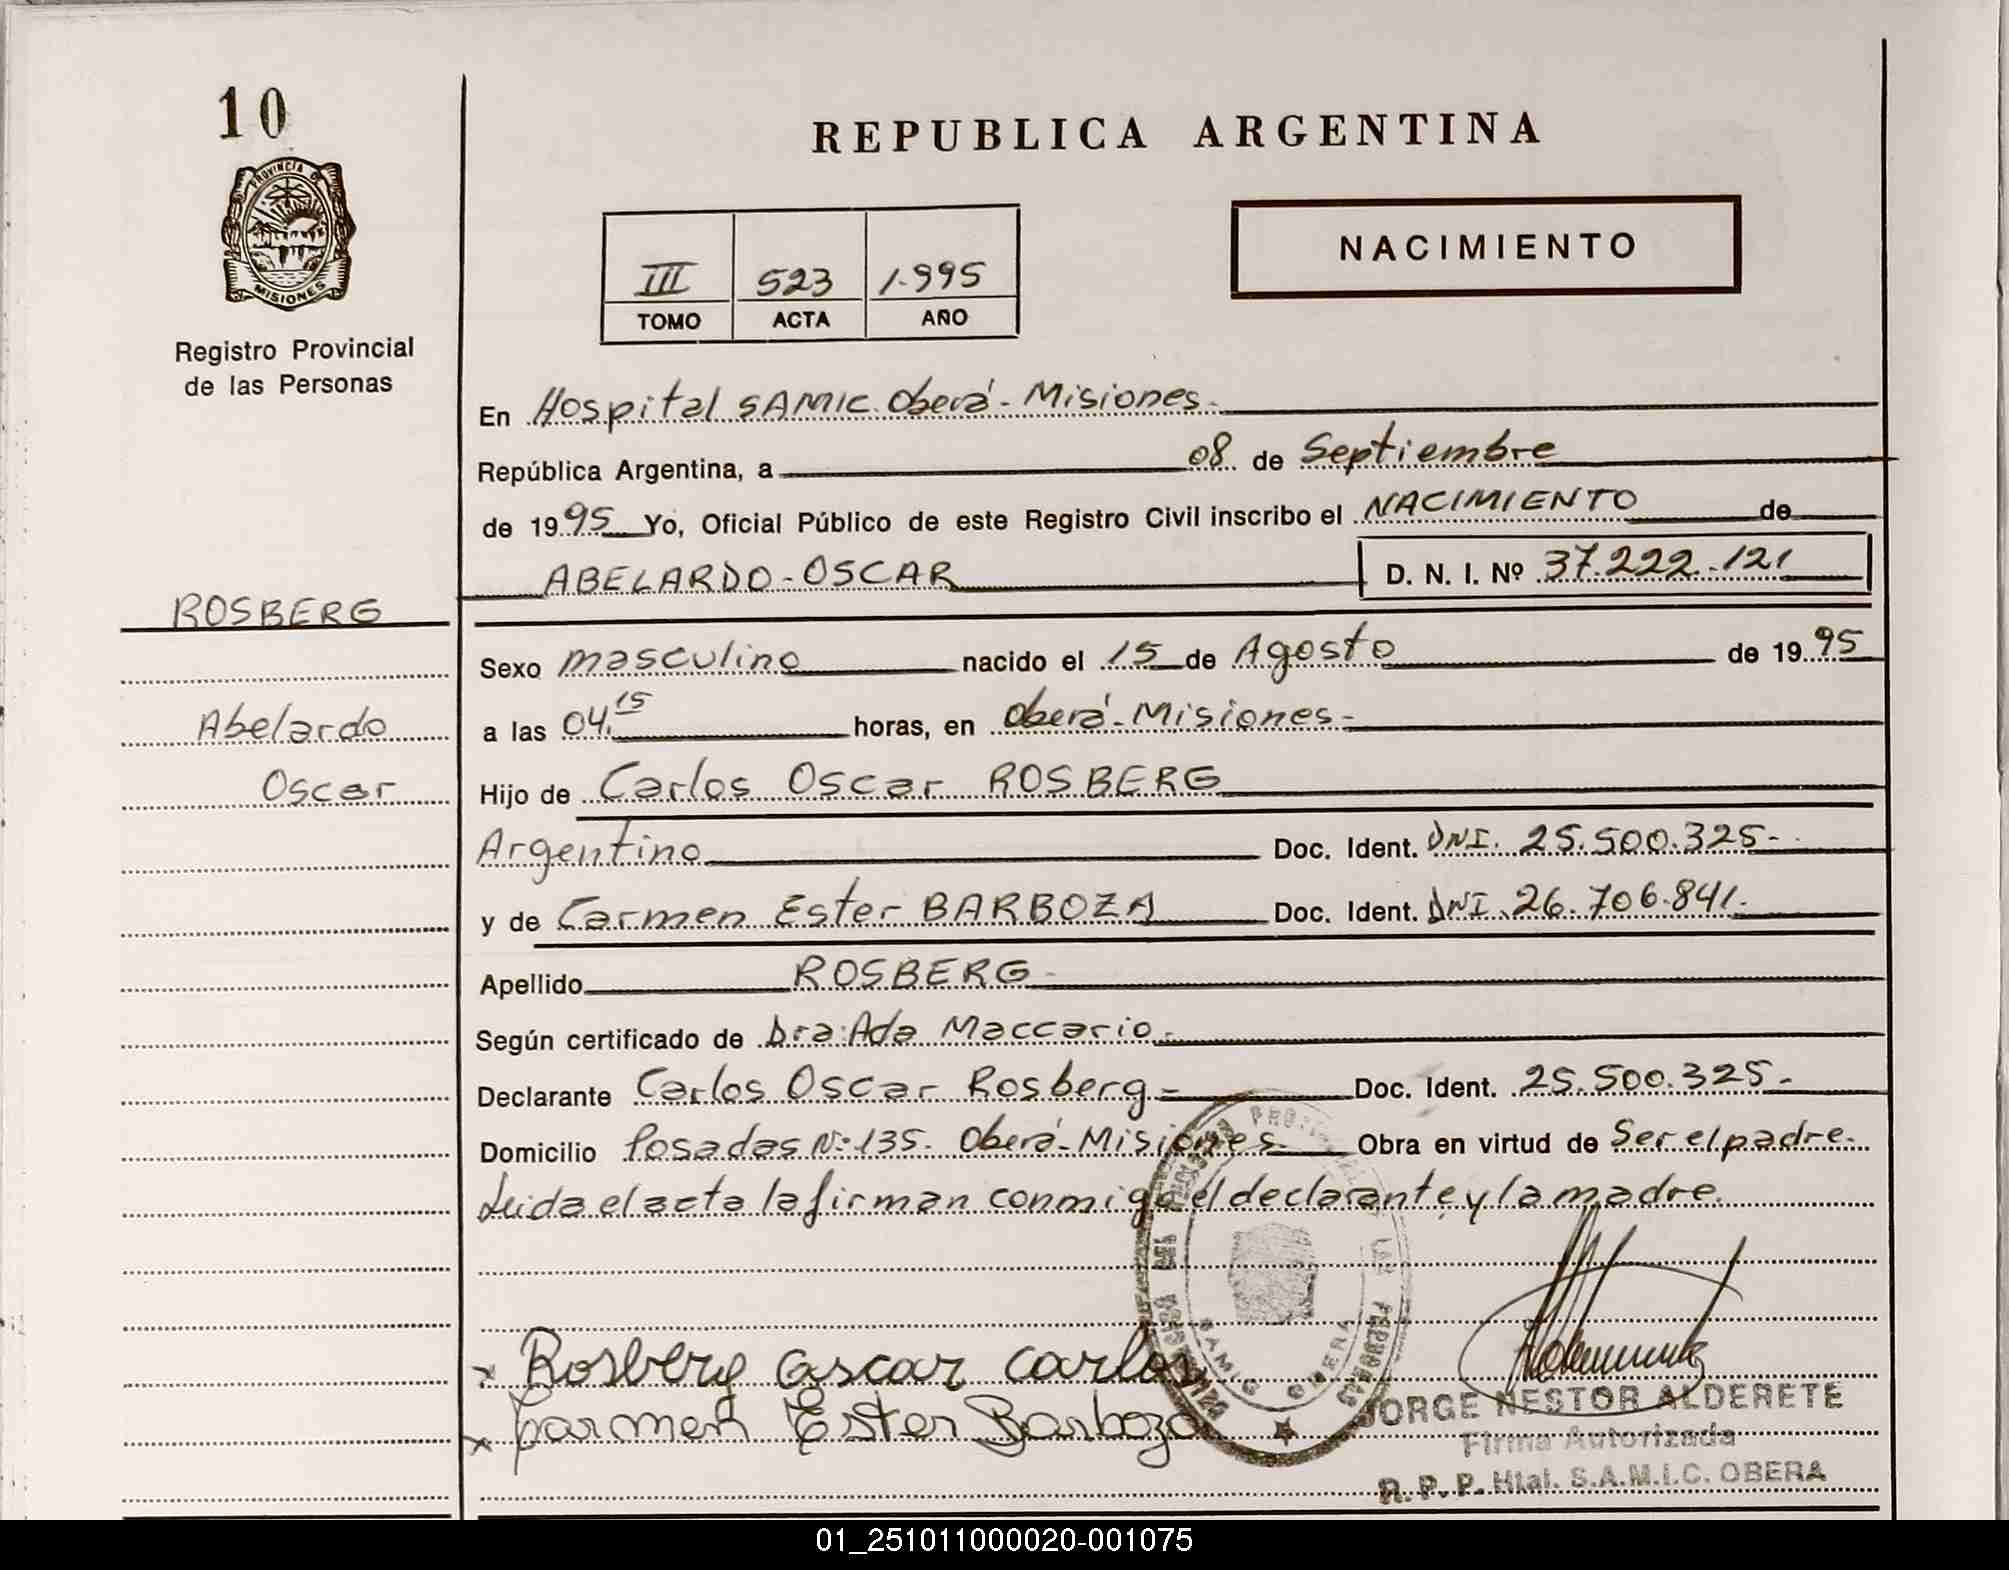 10
PROVINCIA DE
MISIONES
Registro Provincial
de las Personas
REPUBLICA ARGENTINA
III 523 1.995
TOMO ACTA AÑO
NACIMIENTO
En Hospital SAMIC. Oberá - Misiones.
República Argentina, a 08 de Septiembre
de 1995 Yo, Oficial Público de este Registro Civil inscribo el NACIMIENTO de
ABELARDO - OSCAR D. N. I. Nº 37.222.121
ROSBERG
Sexo masculino nacido el 15 de Agosto de 1995
Abelardo
a las 04.15 horas, en Oberá - Misiones -
Oscar
Hijo de Carlos Oscar ROSBERG
Argentino Doc. Ident. DNI. 25.500.325-
y de Carmen Ester BARBOZA Doc. Ident. DNI. 26.706.841.
Apellido ROSBERG -
Según certificado de Dra. Ada Maccario.
Declarante Carlos Oscar Rosberg - Doc. Ident. 25.500.325-
Domicilio Posadas Nº 135. Oberá - Misiones. Obra en virtud de Ser el padre.
Leida el acta la firman conmigo el declarante y la madre.
x Rosberg Oscar Carlos
x Carmen Ester Barboza
SAMIC OBERA
JORGE NESTOR ALDERETE
Firma Autorizada
R. P. P. Htal. S.A.M.I.C. OBERA
01_251011000020-001075